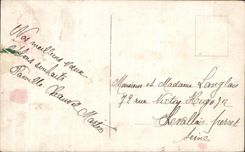 Nos meilleurs vœux
et bons souhaits
Famille
Monsieur et Madame Langlais
72 rue Victor Hugo
Levallois Perret
Seine